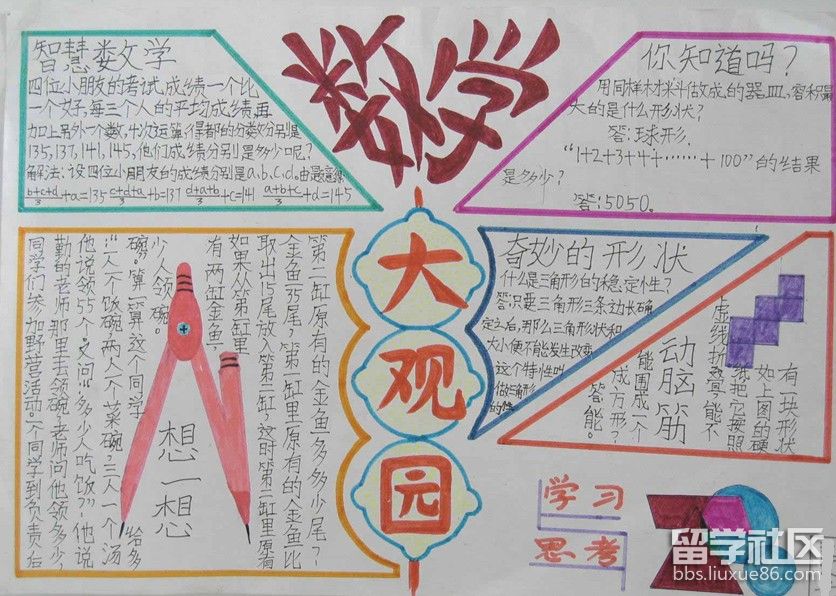 数学
大观园
智慧数学
四位小朋友的考试成绩一个比
一个好,每三个人的平均成绩再
加上另外一个数,
135,137,141,145,他们成绩分别是多少呢?
解法:设四位小朋友的成绩分别是a.b.c.d.由题意得
b+c+d/3+a=135 c+d+a/3+b=137 d+a+b/3+c=141 a+b+c/3+d=145
你知道吗?
用同样材料做成的器皿,容积最
大的是什么形状?
答:球形.
“1+2+3+4+……+100”的结果
是多少?
答:5050。
想一想
同学们参加野营活动。一个同学到负责后
勤的老师那里去领碗,老师问他领多少,
他说领55个。又问“多少人吃饭”他说
“一人一个饭碗,两人一个菜碗,三人一个汤
碗”。算一算这个同学给多
少人领碗。
有两缸金鱼,
如果从第一缸里
取出15尾放入第二缸,这时第二缸里原有
金鱼35尾,第一缸里原有的金鱼比
第二缸原有的金鱼多多少尾?
奇妙的形状
什么是三角形的稳定性?
答:只要三角形三条边长确
定之后,那么三角形状和
大小便不能发生改变,
这个特性叫
做三角形
动脑筋
有一块形状
如上图的硬
纸把它按照
虚线折叠,能不
能围成一个
正方形?
答:能。
学习
思考
留学社区
bbs.liuxue86.com